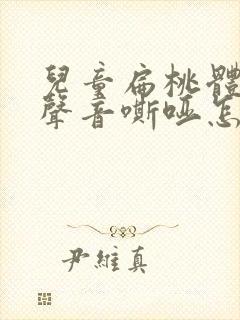 兒童扁桃體
聲音嘶啞怎
尹維真